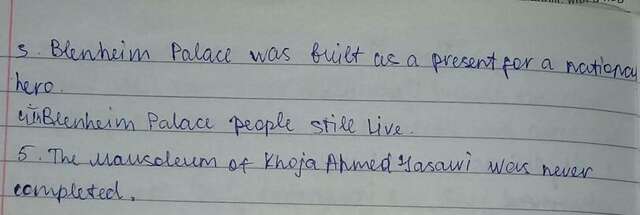 3. Blenheim Palace was built as a present for a national
hero.
4. in Blenheim Palace people still live.
5. The Mausoleum of Khoja Ahmed Yasawi was never
completed.